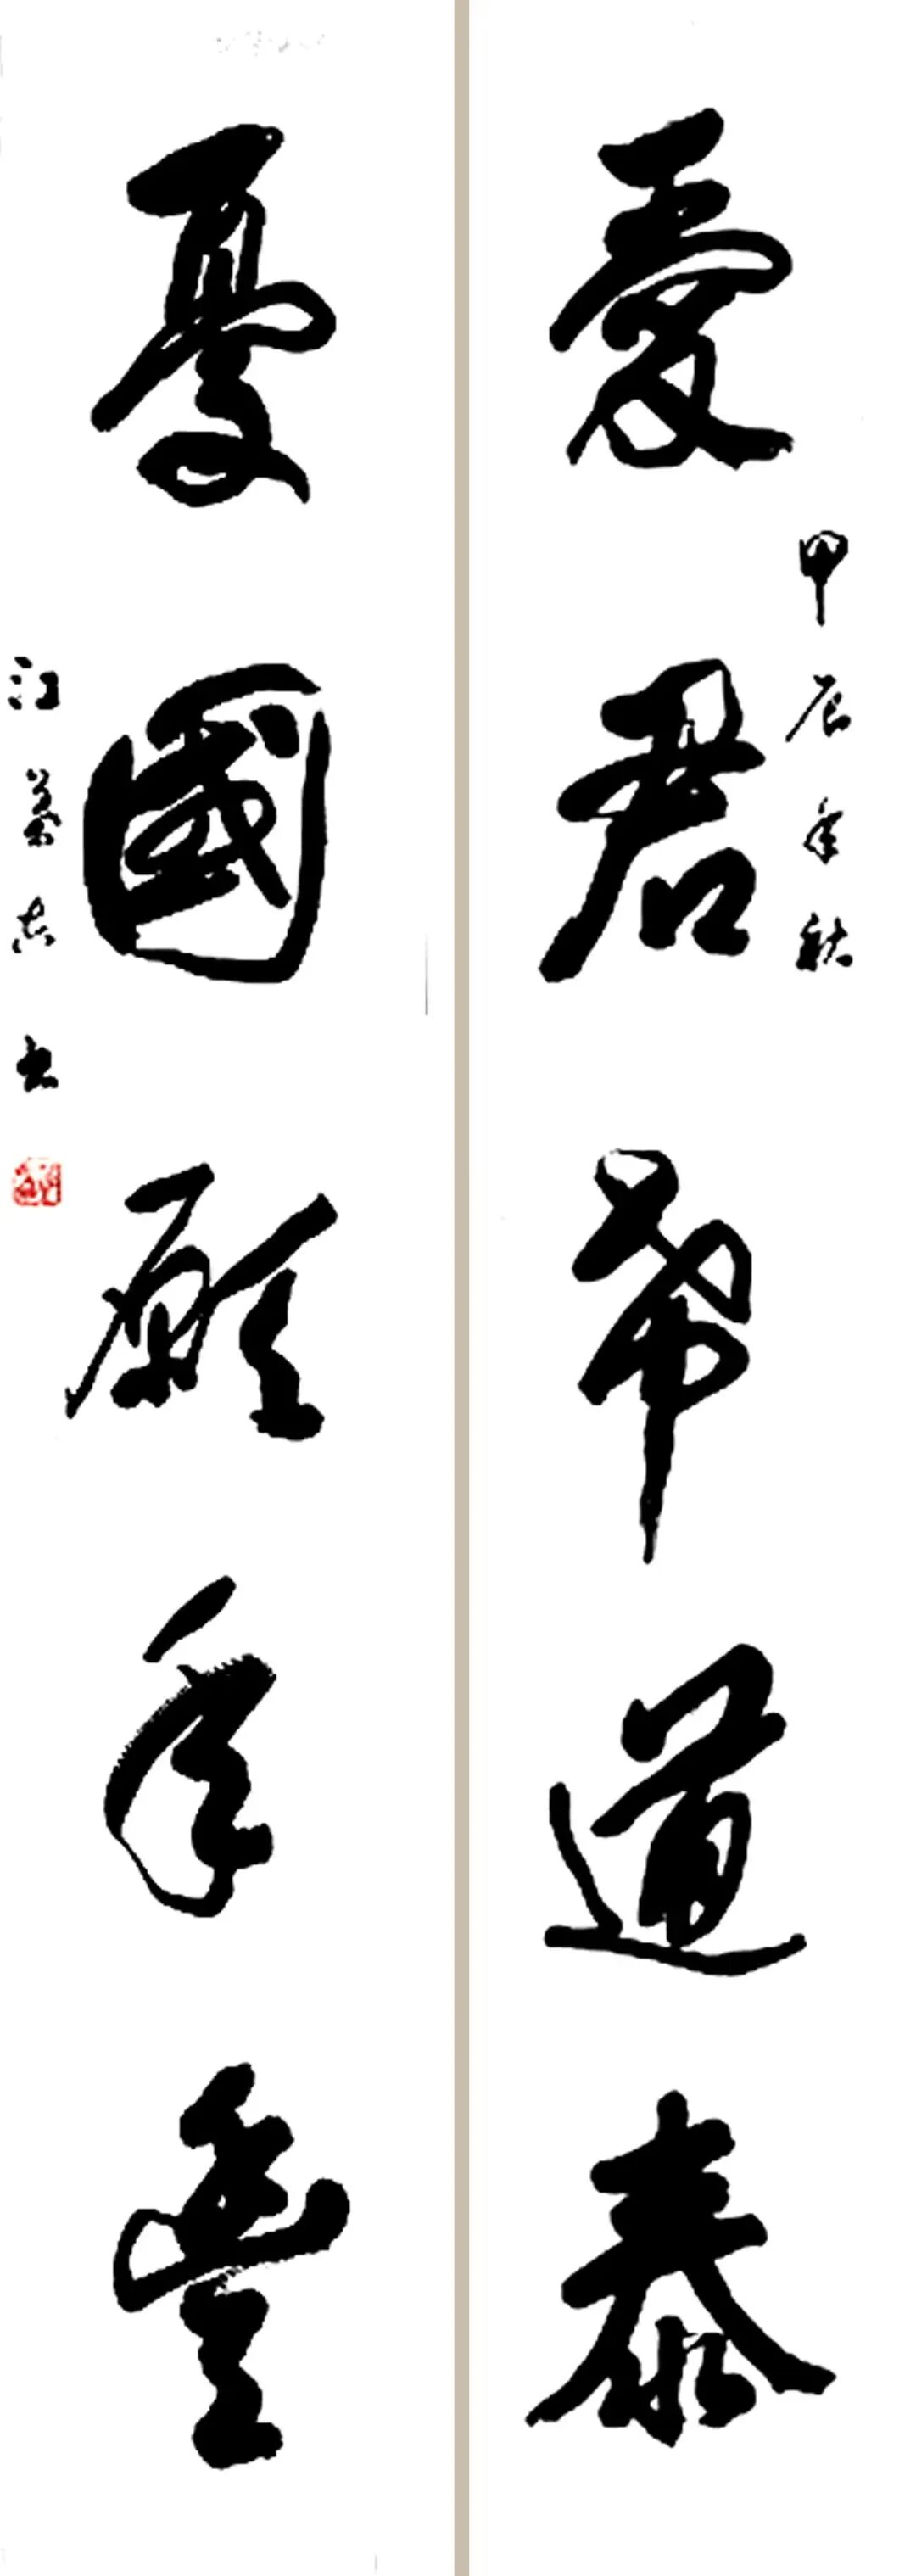 愛君希道泰
甲辰年秋
憂國願年豐
江慕忠書